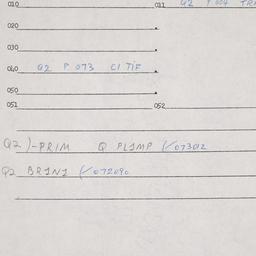 010 011 Q2 P 004 TRA
020
030
040 Q2 P 073 CI TIF
050
051 052
Q2 )-PRIM Q PLIMP (/073012
Q2 BRINI (/072090